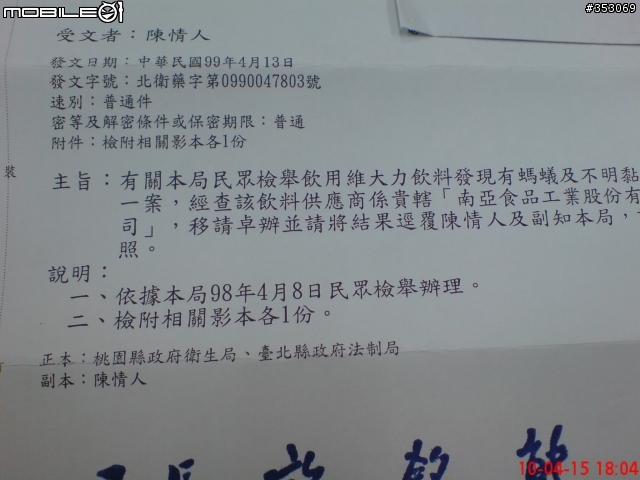 MOBILE01
#353069
受文者：陳情人
發文日期：中華民國99年4月13日
發文字號：北衛藥字第0990047803號
速別：普通件
密等及解密條件或保密期限：普通
附件：檢附相關影本各1份
裝
主旨：有關本局民眾檢舉飲用維大力飲料發現有螞蟻及不明黏
一案，經查該飲料供應商係貴轄「南亞食品工業股份有
司」，移請卓辦並請將結果逕覆陳情人及副知本局，
照。
說明：
一、依據本局98年4月8日民眾檢舉辦理。
二、檢附相關影本各1份。
正本：桃園縣政府衛生局、臺北縣政府法制局
副本：陳情人
長
10-04-15 18:04